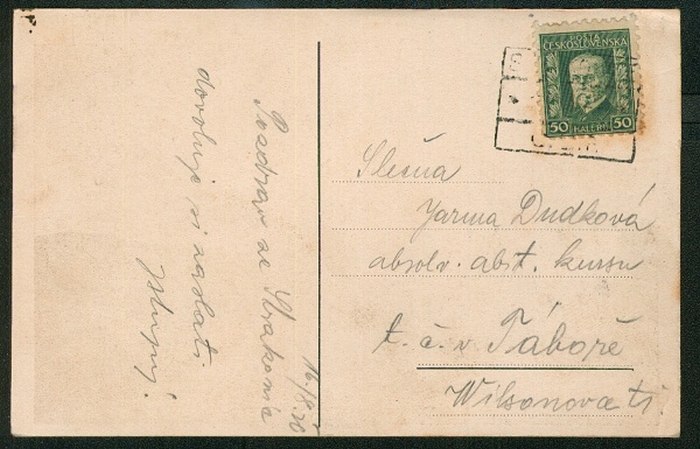 Pozdrav ze Strakonic
dovoluje si zaslati
16/8.30
POŠTA
ČESKOSLOVENSKÁ
50 HALÉŘŮ 50
Slečna
Jarma Dudková
absolv. abit. kursu
t. č. v Táboře
Wilsonova tř.